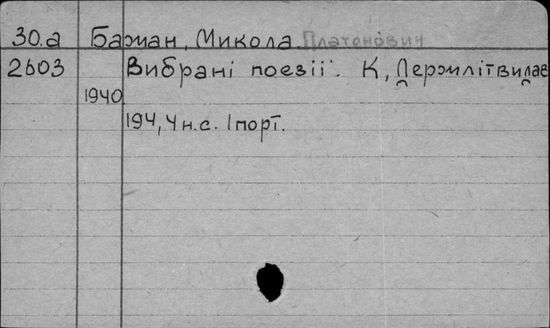 30.а Бажан, Микола Платонович
2603 Вибрані поезії. К, Держлітвидав
1940
194, 4 н.с. 1 порт.